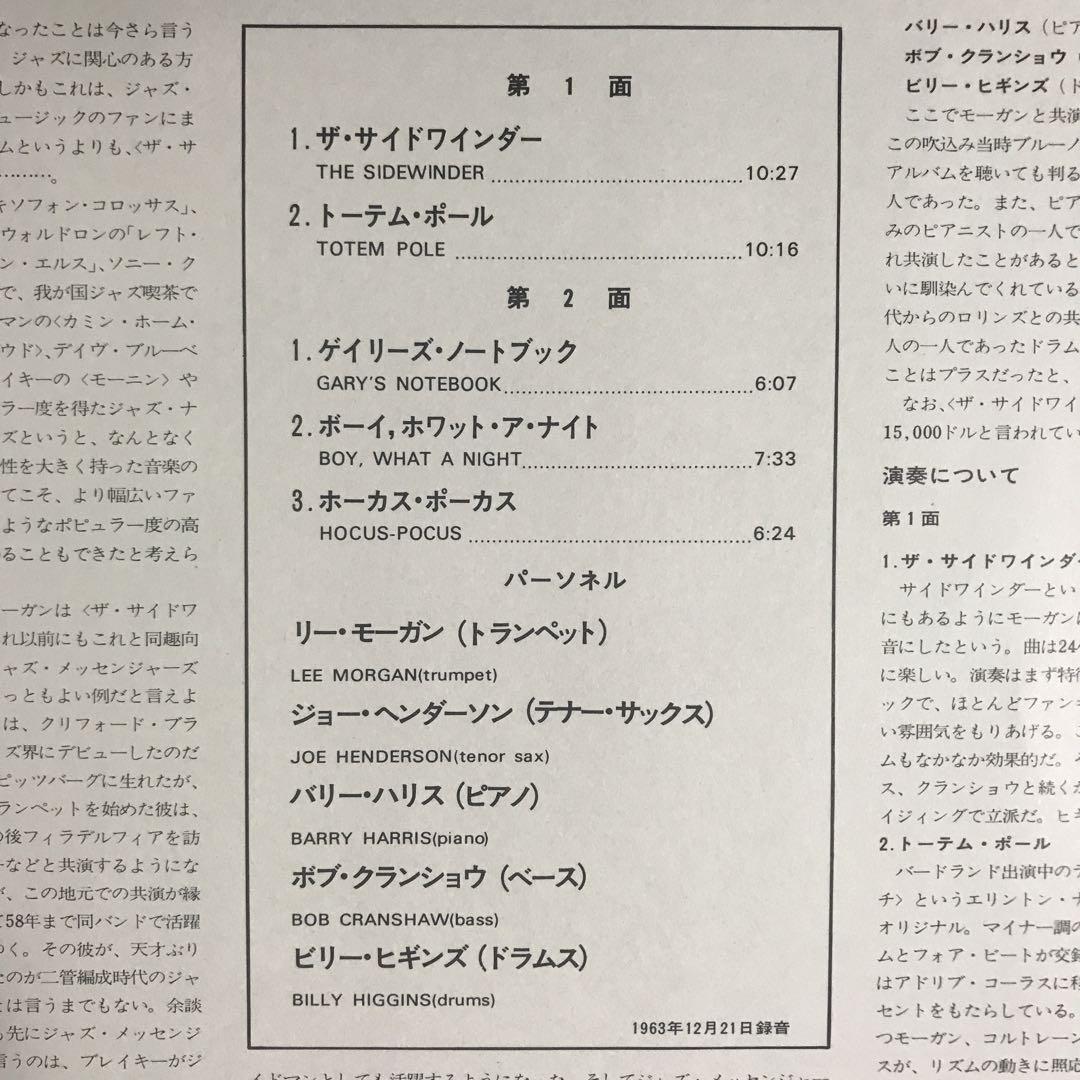 なったことは今さら言う
ジャズに関心のある方
しかもこれは、ジャズ・
ュージックのファンにま
ムというよりも、〈ザ・サ
………。
キソフォン・コロッサス」、
ウォルドロンの「レフト・
ン・エルス」、ソニー・ク
で、我が国ジャズ喫茶で
マンの〈カミン・ホーム・
ウド〉、デイヴ・ブルーベ
イキーの〈モーニン〉や
ラー度を得たジャズ・ナ
ズというと、なんとなく
性を大きく持った音楽の
てこそ、より幅広いファ
ようなポピュラー度の高
ることもできたと考えら
ーガンは〈ザ・サイドワ
れ以前にもこれと同趣向
ャズ・メッセンジャーズ
っともよい例だと言えよ
は、クリフォード・ブラ
ズ界にデビューしたのだ
ピッツバーグに生れたが、
ランペットを始めた彼は、
の後フィラデルフィアを訪
などと共演するようにな
、この地元での共演が縁
て58年まで同バンドで活躍
く。その彼が、天才ぶり
たのが二管編成時代のジャ
とは言うまでもない。余談
も先にジャズ・メッセンジ
言うのは、ブレイキーがジ
第 1 面
1.ザ・サイドワインダー
THE SIDEWINDER ..............................10:27
2.トーテム・ポール
TOTEM POLE ..............................10:16
第 2 面
1.ゲイリーズ・ノートブック
GARY'S NOTEBOOK..............................6:07
2.ボーイ,ホワット・ア・ナイト
BOY, WHAT A NIGHT..............................7:33
3.ホーカス・ポーカス
HOCUS-POCUS ..............................6:24
パーソネル
リー・モーガン(トランペット)
LEE MORGAN(trumpet)
ジョー・ヘンダーソン(テナー・サックス)
JOE HENDERSON(tenor sax)
バリー・ハリス(ピアノ)
BARRY HARRIS(piano)
ボブ・クランショウ(ベース)
BOB CRANSHAW(bass)
ビリー・ヒギンズ(ドラムス)
BILLY HIGGINS(drums)
1963年12月21日録音
イドマンとしても活躍するようになった。そしてジャズ・メッセンジャー
バリー・ハリス(ピア
ボブ・クランショウ
ビリー・ヒギンズ(ド
ここでモーガンと共演
この吹込み当時ブルーノ
アルバムを聴いても判る
人であった。また、ピア
みのピアニストの一人で
れ共演したことがあると
いに馴染んでくれている
代からのロリンズとの共
人の一人であったドラム
ことはプラスだったと、
なお、〈ザ・サイドワイ
15,000ドルと言われてい
演奏について
第1面
1.ザ・サイドワインダ
サイドワインダーとい
にもあるようにモーガンに
音にしたという。曲は24
に楽しい。演奏はまず特徴
ックで、ほとんどファンキ
い雰囲気をもりあげる。
ムもなかなか効果的だ。
ス、クランショウと続くが
イジィングで立派だ。ヒギ
2.トーテム・ポール
バードランド出演中の
チ〉というエリントン・ナ
オリジナル。マイナー調の
ムとフォア・ビートが交錯
はアドリブ・コーラスに移
セントをもたらしている。
つモーガン、コルトレーン
スが、リズムの動きに照応